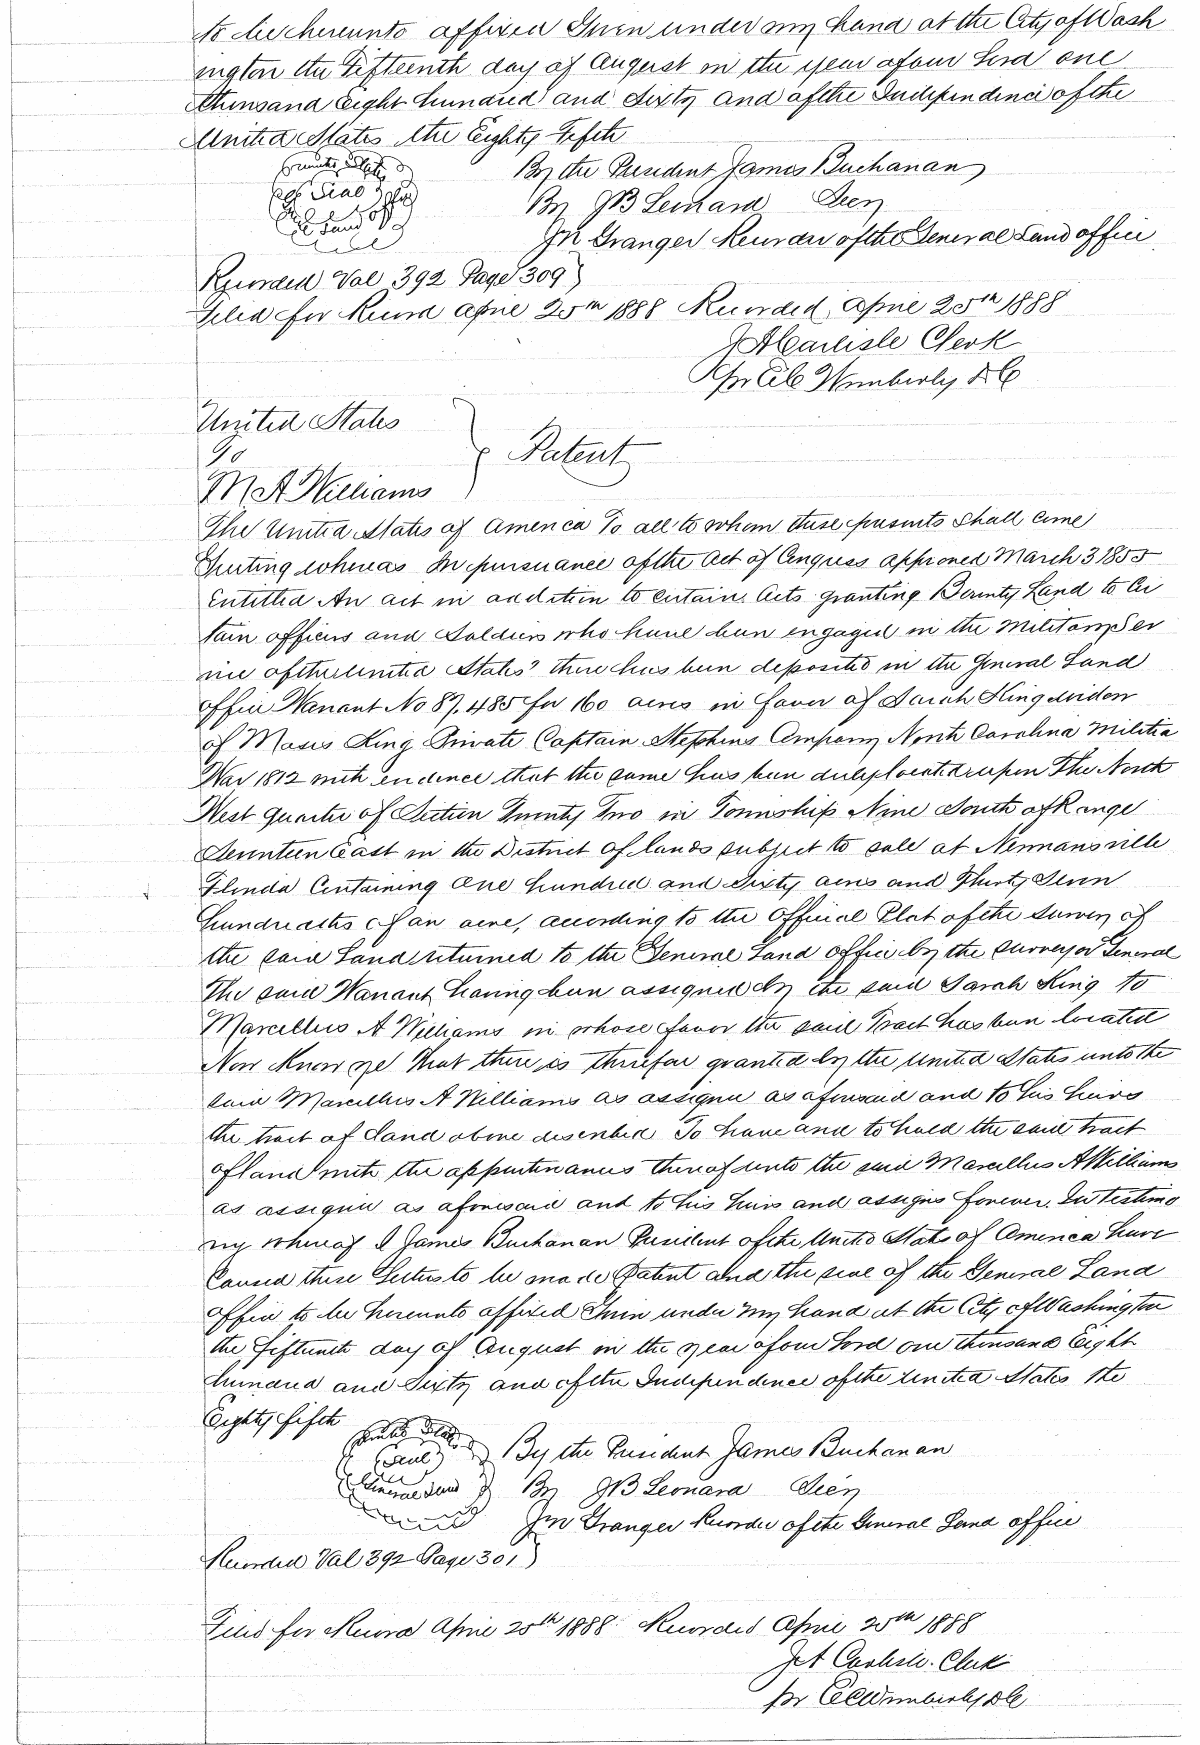 to be hereunto affixed Given under my hand at the City of Wash
ington the Fifteenth day of August in the year of our Lord one
thousand Eight hundred and Sixty and of the Independence of the
United States the Eighty Fifth
By the President James Buchanan
Seal
By JB Leonard Secy
Land off
Jn Granger Recorder of the General Land office
Recorded Val 392 Page 309
Filed for Record April 25th 1888 Recorded April 25th 1888
J A Carlisle Clerk
Pr C C Wimberly D C
United States
To
Patent
M A Williams
The United States of America To all to whom these presents shall come
Greeting whereas In pursuance of the Act of Congress approved March 3 1855
Entitled An act in addition to certain Acts granting Bounty Land to Cer
tain officers and Soldiers who have been engaged in the Military Ser
vice of the United States" there has been deposited in the General Land
office Warrant No 87,485 for 160 acres in favor of Sarah King widow
of Moses King Private Captain Stephens Company North Carolina Militia
War 1812 with evidence that the same has been duly located upon The North
West quarter of Section Twenty Two in Township Nine South of Range
Seventeen East in the District of lands subject to sale at Newnansville
Florida Containing One hundred and Sixty acres and Thirty Seven
hundredths of an acre, according to the Official Plat of the Survey of
the said Land returned to the General Land office by the Surveyor General
The said Warrant having been assigned by the said Sarah King to
Marcellus A Williams in whose favor the said Tract has been located
Now Know ye That there is therefor granted by the United States unto the
said Marcellus A Williams as assignee as aforesaid and to his heirs
the tract of Land above described To have and to hold the said tract
of land with the appurtenances thereof unto the said Marcellus A Williams
as assignee as aforesaid and to his heirs and assigns forever. In testimo
ny whereof I James Buchanan President of the United States of America have
Caused these Letters to be made Patent and the seal of the General Land
office to be hereunto affixed Given under my hand at the City of Washington
the fifteenth day of August in the year of our Lord one thousand Eight
hundred and Sixty and of the Independence of the United States the
Eighty fifth
By the President James Buchanan
Seal
General Land
By JB Leonard Secy
Jn Granger Recorder of the General Land office
Recorded Val 392 Page 301
Filed for Record April 25th 1888 Recorded April 25th 1888
J A Carlisle. Clerk
pr C C Wimberly D C